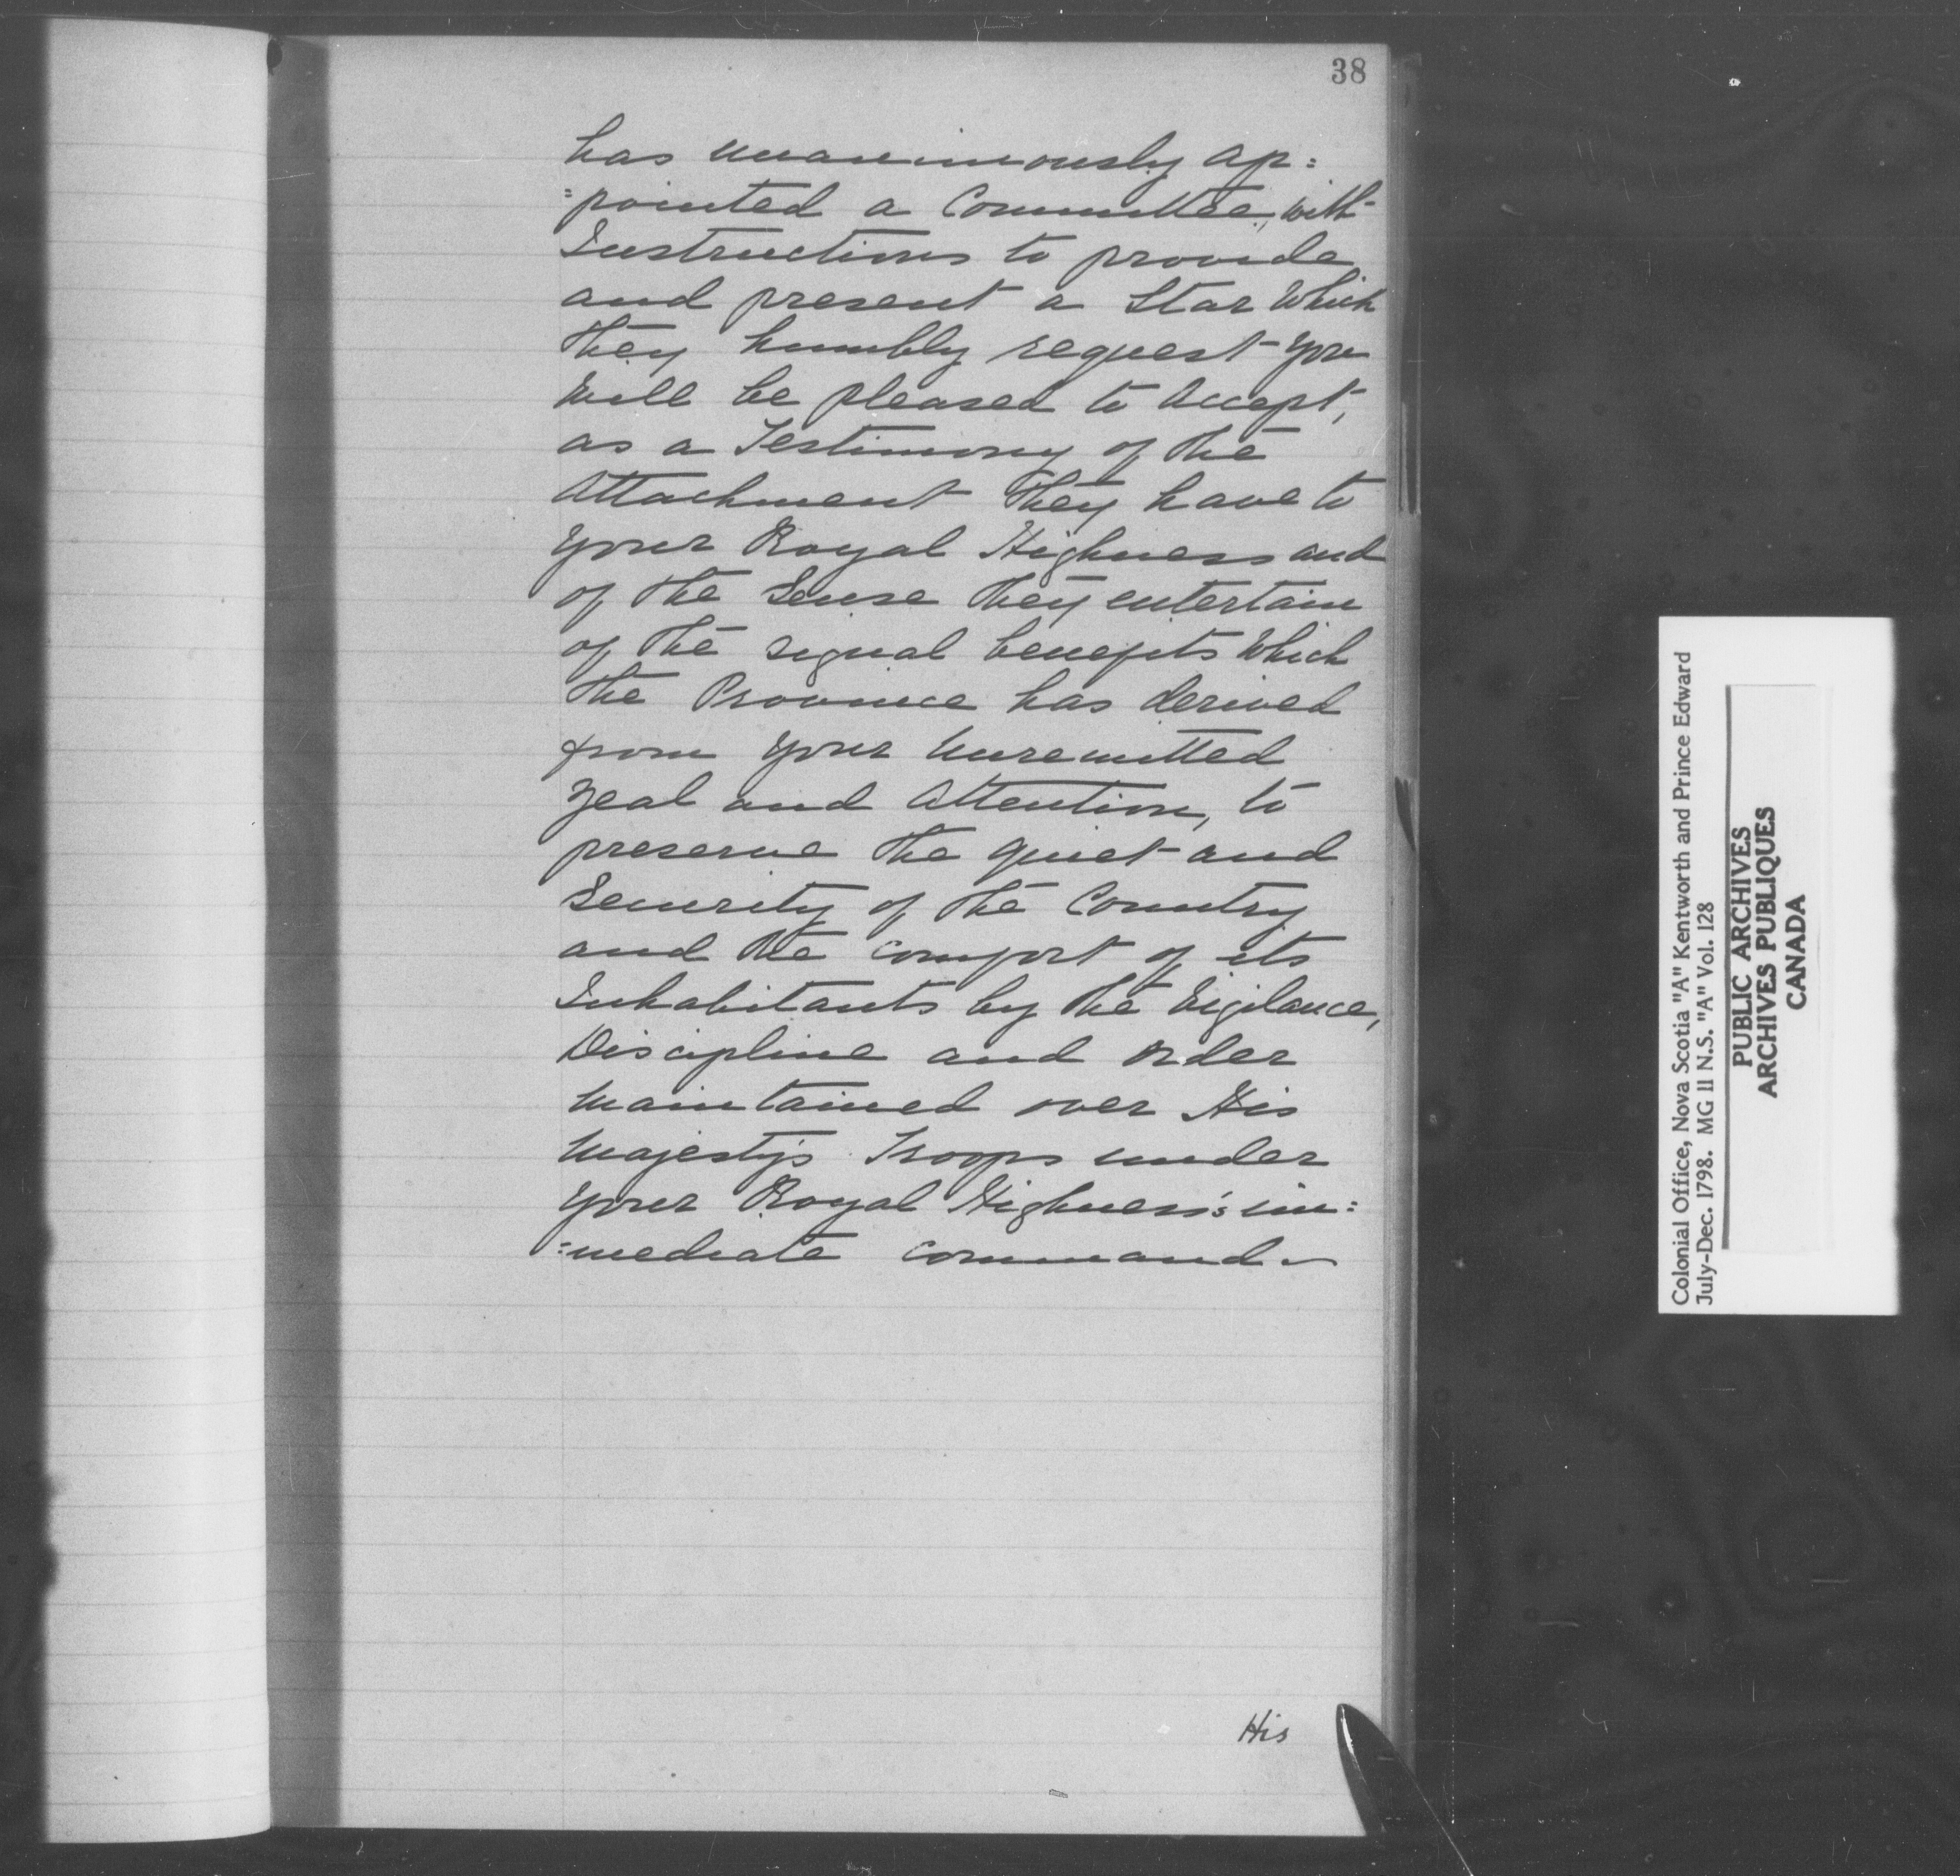 38
has unanimously ap:
:pointed a Committee, with
Instructions to provide
and present a Star Which
they humbly request you
will be pleased to Accept,
as a Testimony of the
Attachment they have to
your Royal Highness and
of the Sense they entertain
of the signal benefits Which
the Province has derived
from your unremitted
zeal and Attention, to
preserve the quiet and
Security of the Country
and the comfort of its
Inhabitants by the Vigilance,
Discipline and order
maintained over His
Majesty's Troops under
your Royal Highness's im:
:mediate command
His
Colonial Office, Nova Scotia "A" Kentworth and Prince Edward
July-Dec. 1798. MG 11 N.S. "A" Vol. 128
PUBLIC ARCHIVES
ARCHIVES PUBLIQUES
CANADA